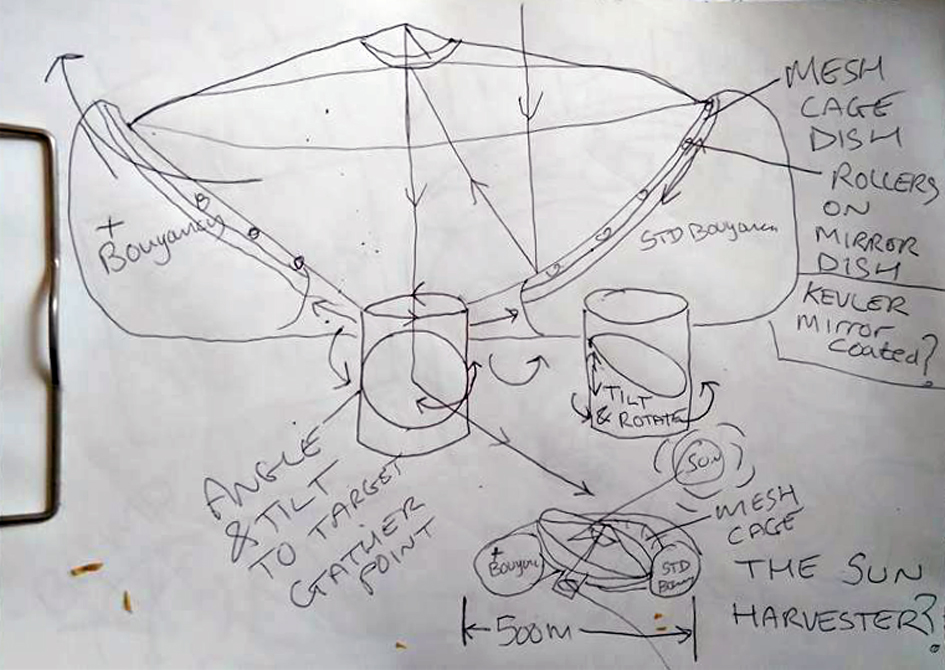 MESH
CAGE
DISH
ROLLERS
ON
MIRROR
DISH
KEVLER
MIRROR
COATED?
+
Bouyancy
STD Bouyancy
TILT
& ROTATE
ANGLE
& TILT
TO TARGET
GATHER
POINT
SUN
MESH
CAGE
+
Bouyancy
STD
500m
THE SUN
HARVESTER?